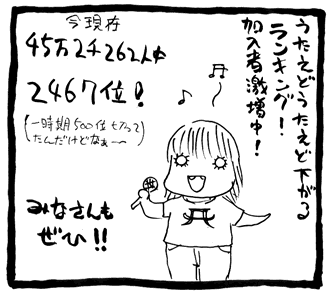 うたえどうたえど下がる
ランキング！
加入者激増中！
今現在
45万2千262人中
2467位！
(一時期500位切って
たんだけどなぁー〜
みなさんも
ぜひ!!